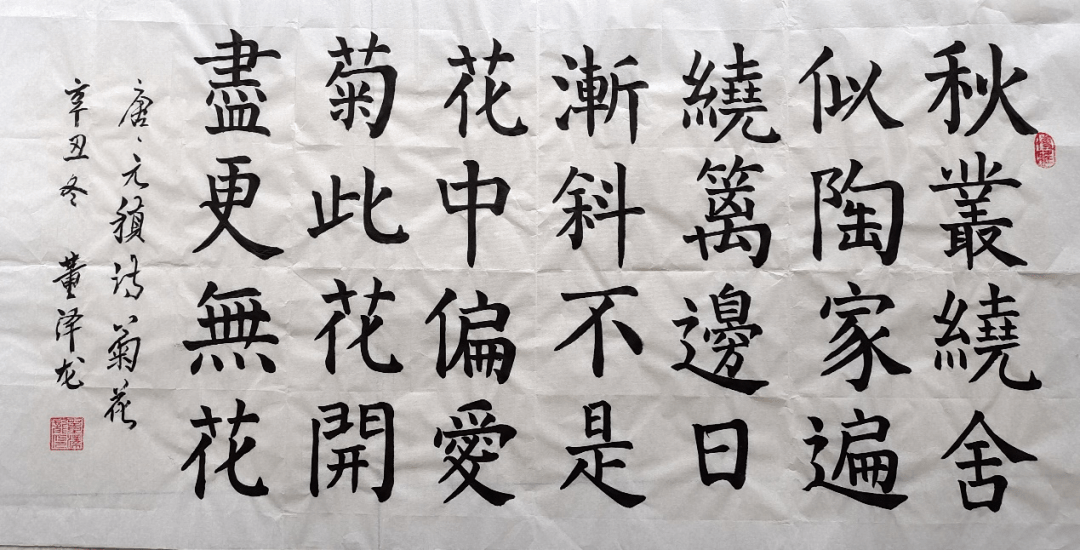 秋叢繞舍
似陶家遍
繞籬邊日
漸斜不是
花中偏愛
菊此花開
盡更無花
唐、元稹诗菊花
辛丑冬 董泽龙